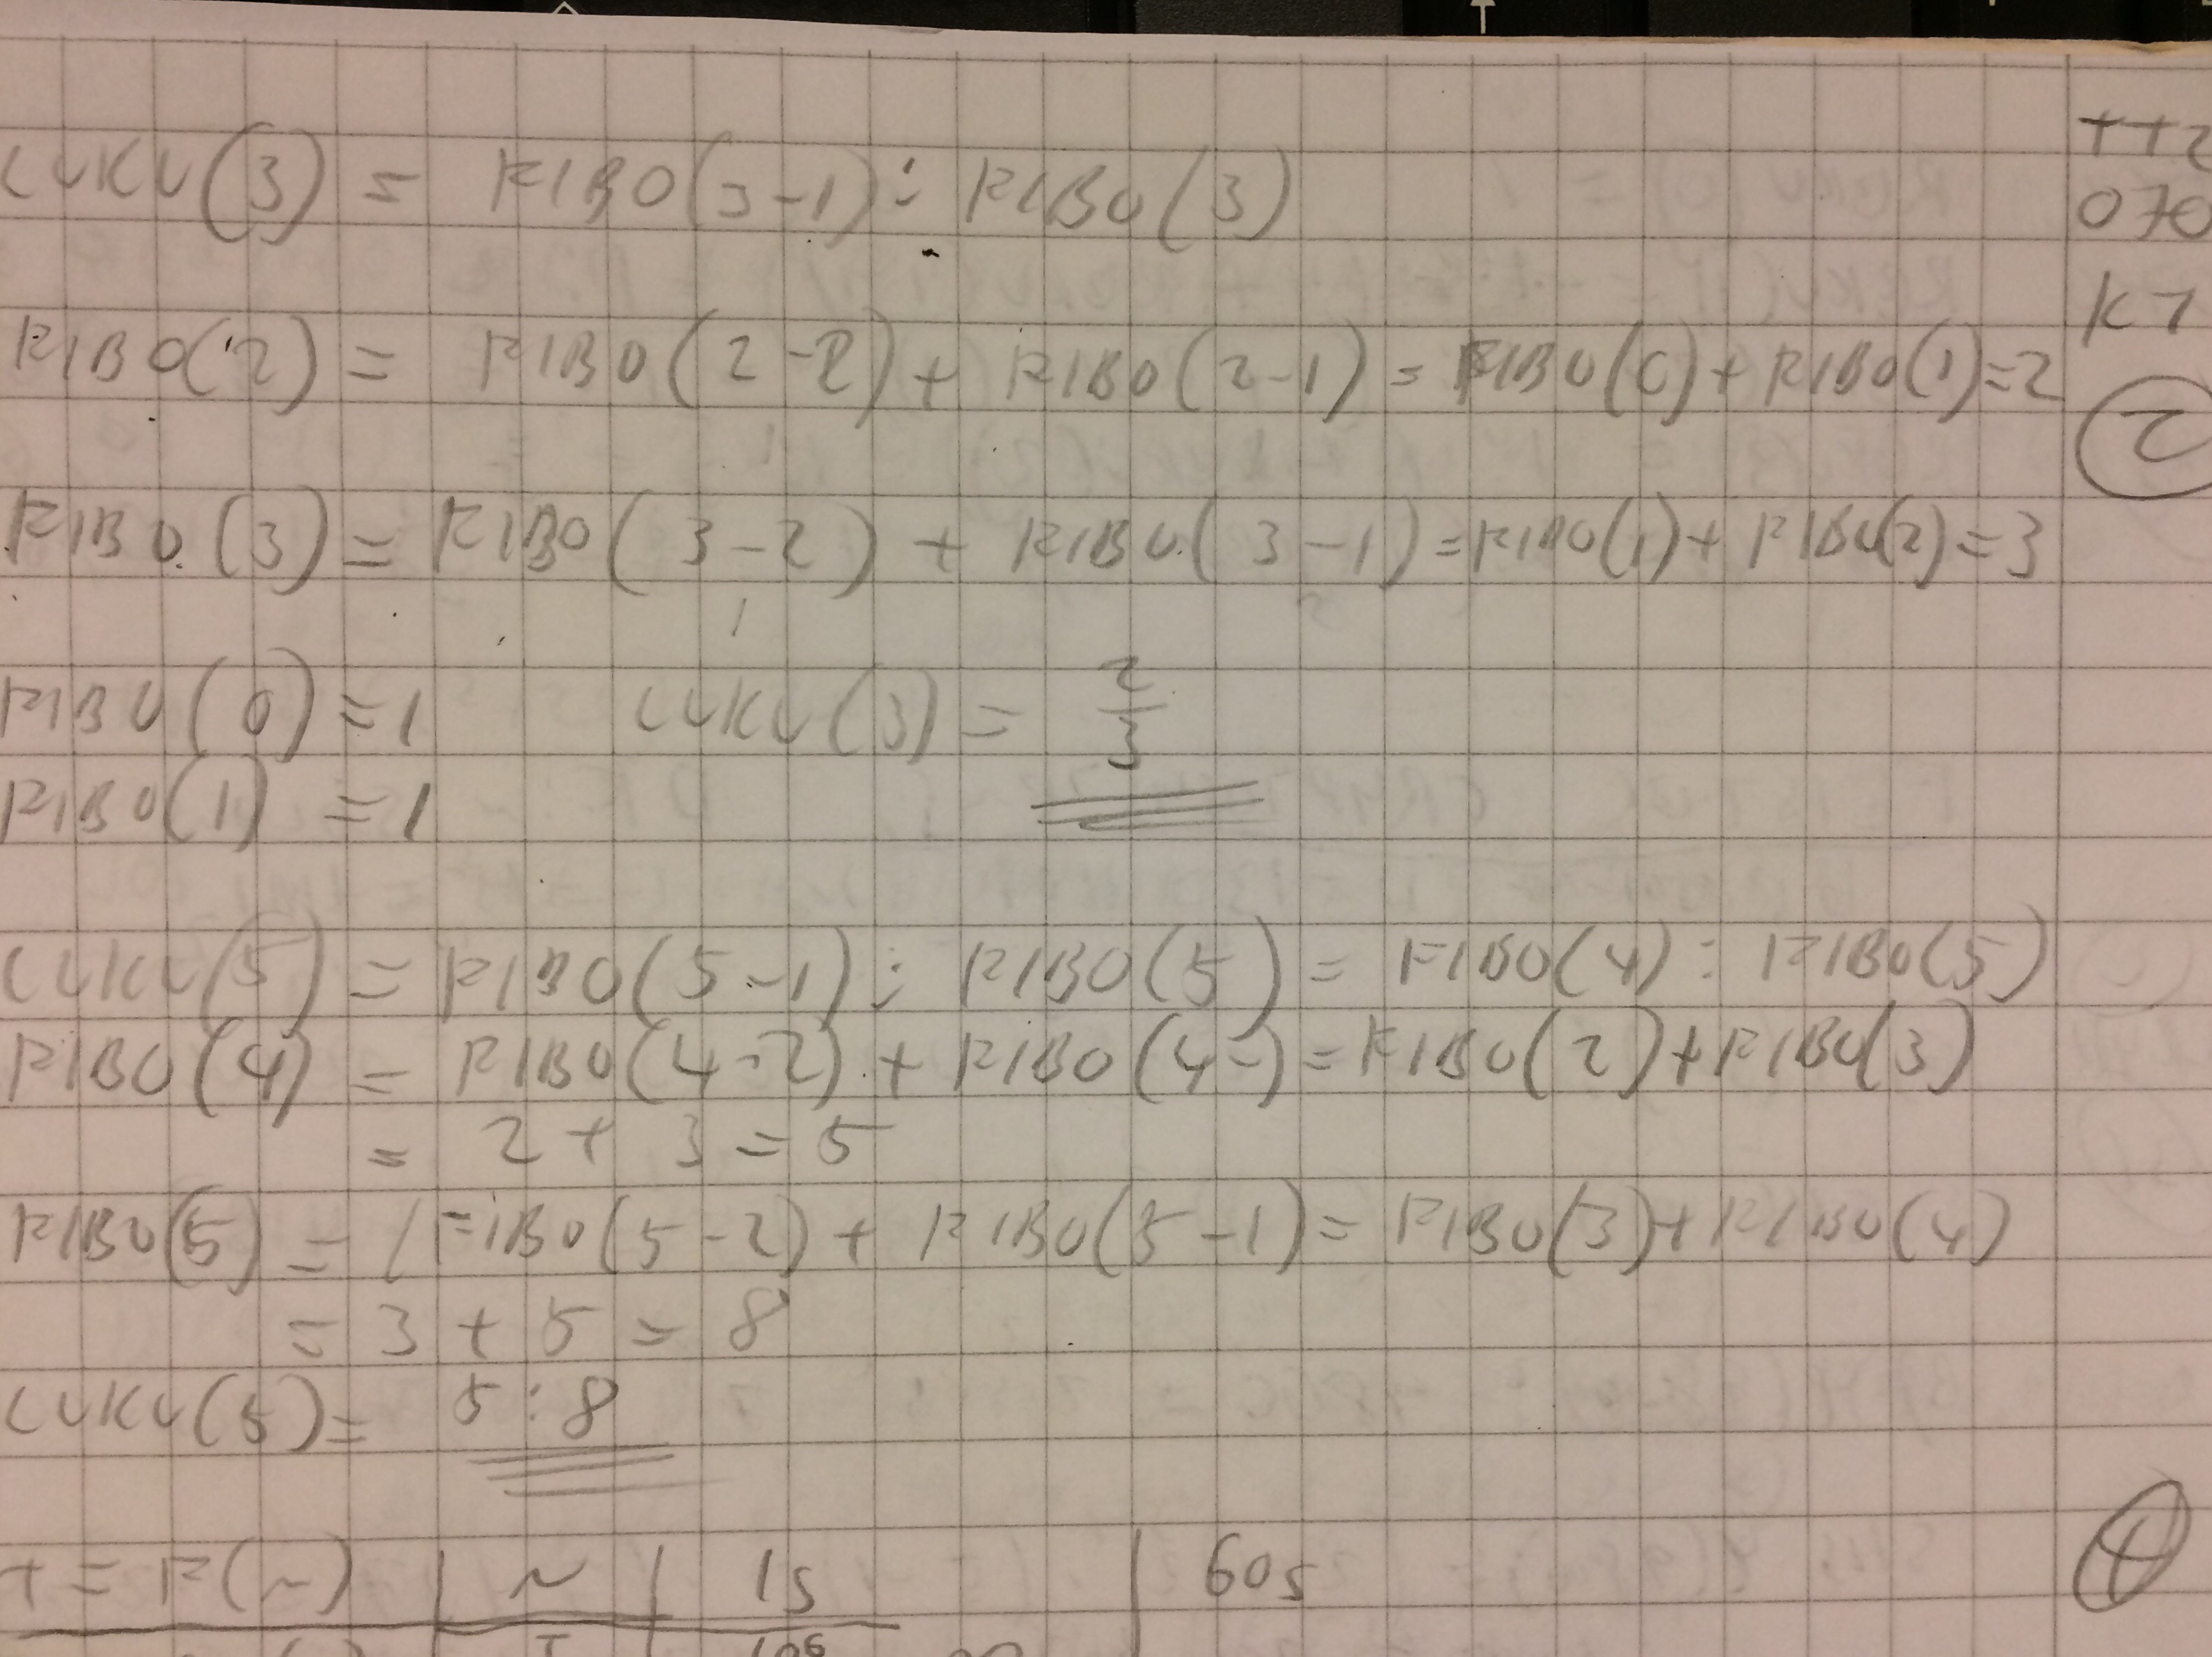 LUKU(3) = FIBO(3-1) : FIBO(3)
FIBO(2) = FIBO(2-2) + FIBO(2-1) = FIBO(0) + FIBO(1) = 2
FIBO(3) = FIBO(3-2) + FIBO(3-1) = FIBO(1) + FIBO(2) = 3
1 2
FIBO(0) = 1 LUKU(3) = 2/3
FIBO(1) = 1
LUKU(5) = FIBO(5-1) : FIBO(5) = FIBO(4) : FIBO(5)
FIBO(4) = FIBO(4-2) + FIBO(4-) = FIBO(2) + FIBO(3)
= 2 + 3 = 5
FIBO(5) = FIBO(5-2) + FIBO(5-1) = FIBO(3) + FIBO(4)
= 3 + 5 = 8
LUKU(5) = 5:8
T = F(~) | ~ | 1s | 60s
TT2
070
KT
2